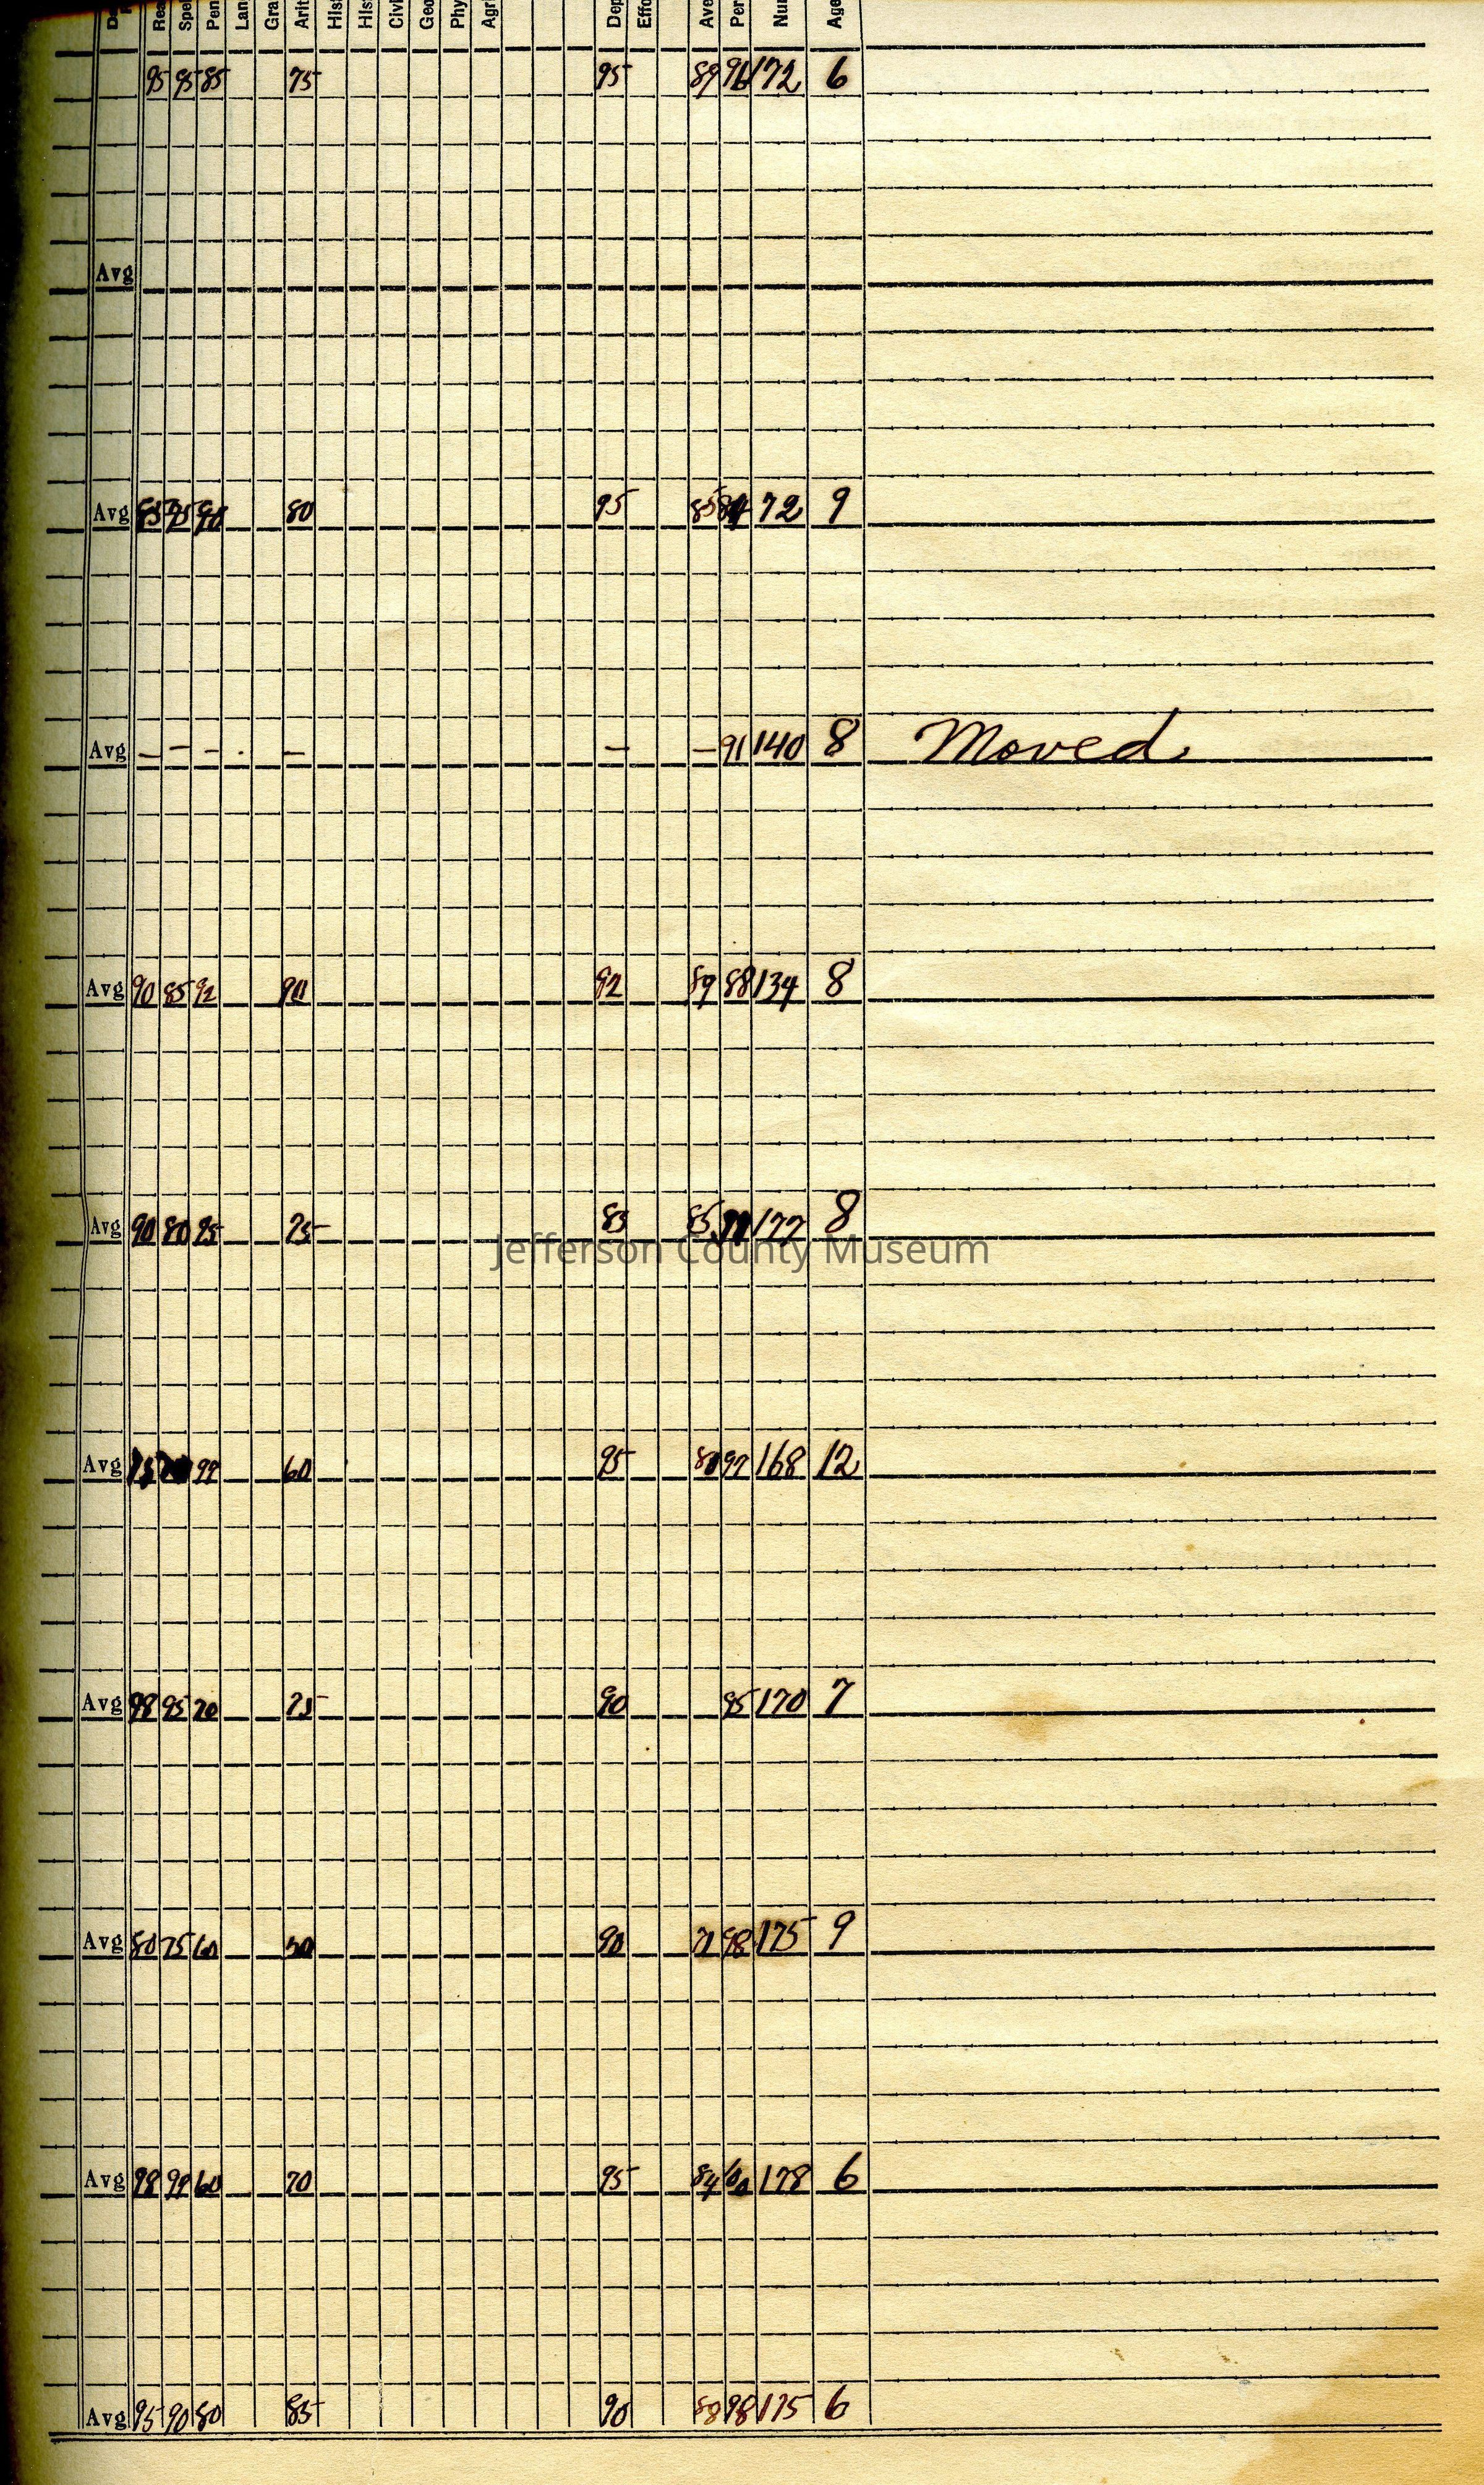 Rea Spel Pen Lan Gra Arit Hist Hist Civi Geo Phy Agri Dep Effo Ave Per Nu Age
95 95 85 75 95 89 96 172 6
Avg
Avg 85 95 90 80 95 85 72 9
Avg — — — . — — — 91 140 8 Moved
Avg 90 85 92 90 92 89 88 134 8
Avg 90 80 95 75 85 85 177 8
Jefferson County Museum
Avg 75 99 60 95 80 97 168 12
Avg 98 95 70 75 90 95 170 7
Avg 80 75 60 50 90 71 98 175 9
Avg 98 99 60 70 95 84 100 178 6
Avg 95 90 80 85 90 88 98 175 6